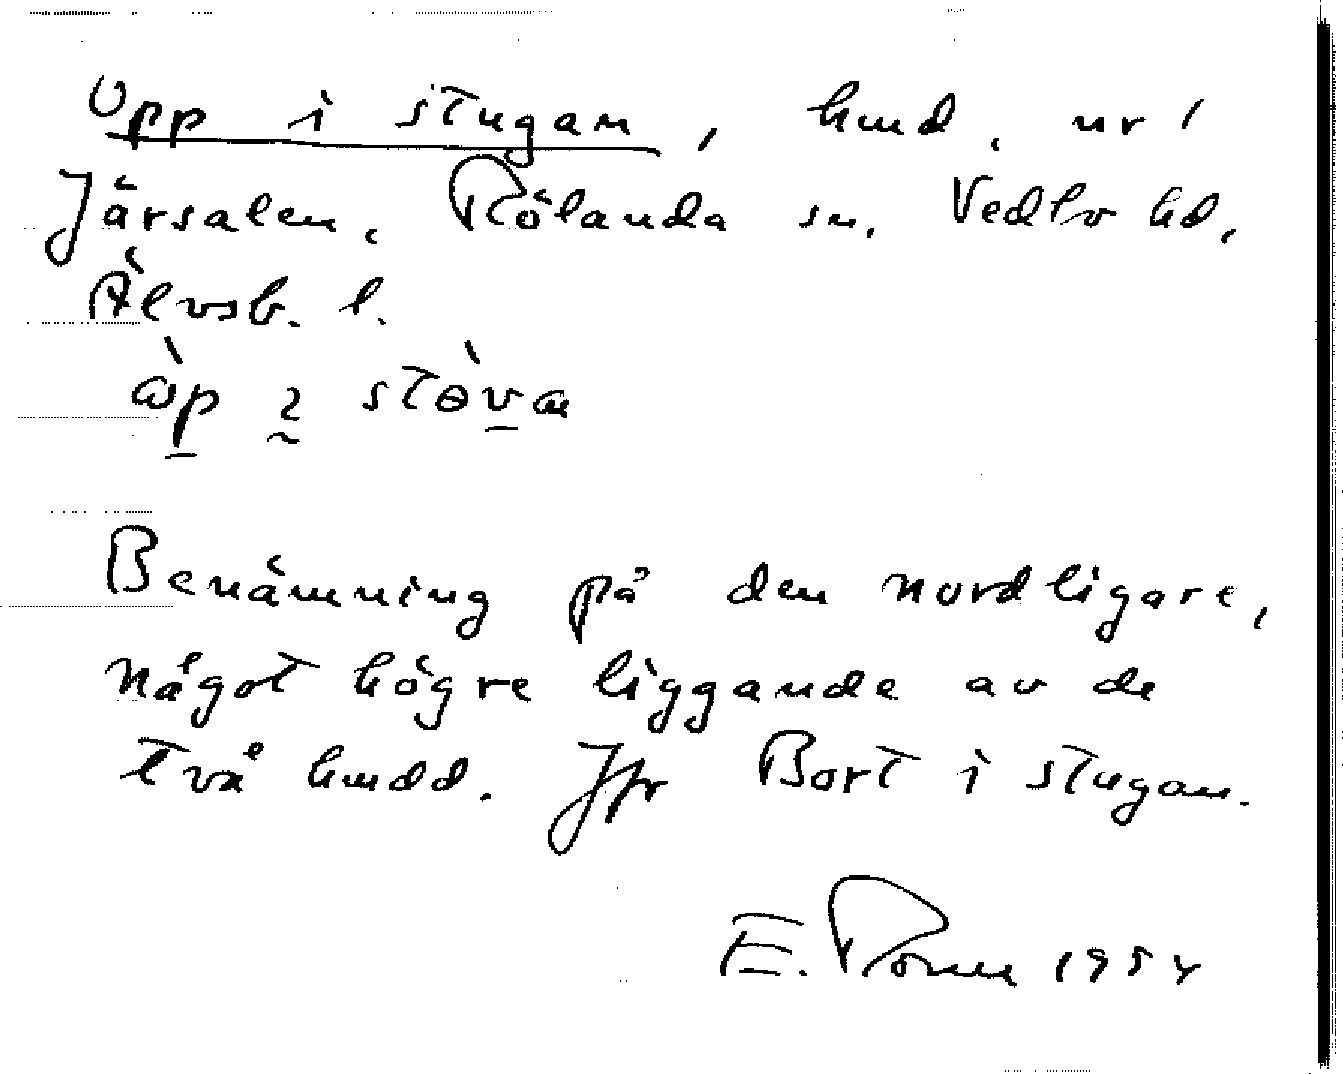 Upp i stugan, hmd, nr 1
Järsalen, Rölanda sn, Vedbo hd,
Älvsb. l.
Benämning på den nordligare,
något högre liggande av de
två hmdd. Jfr Bort i stugan.
E. 1954